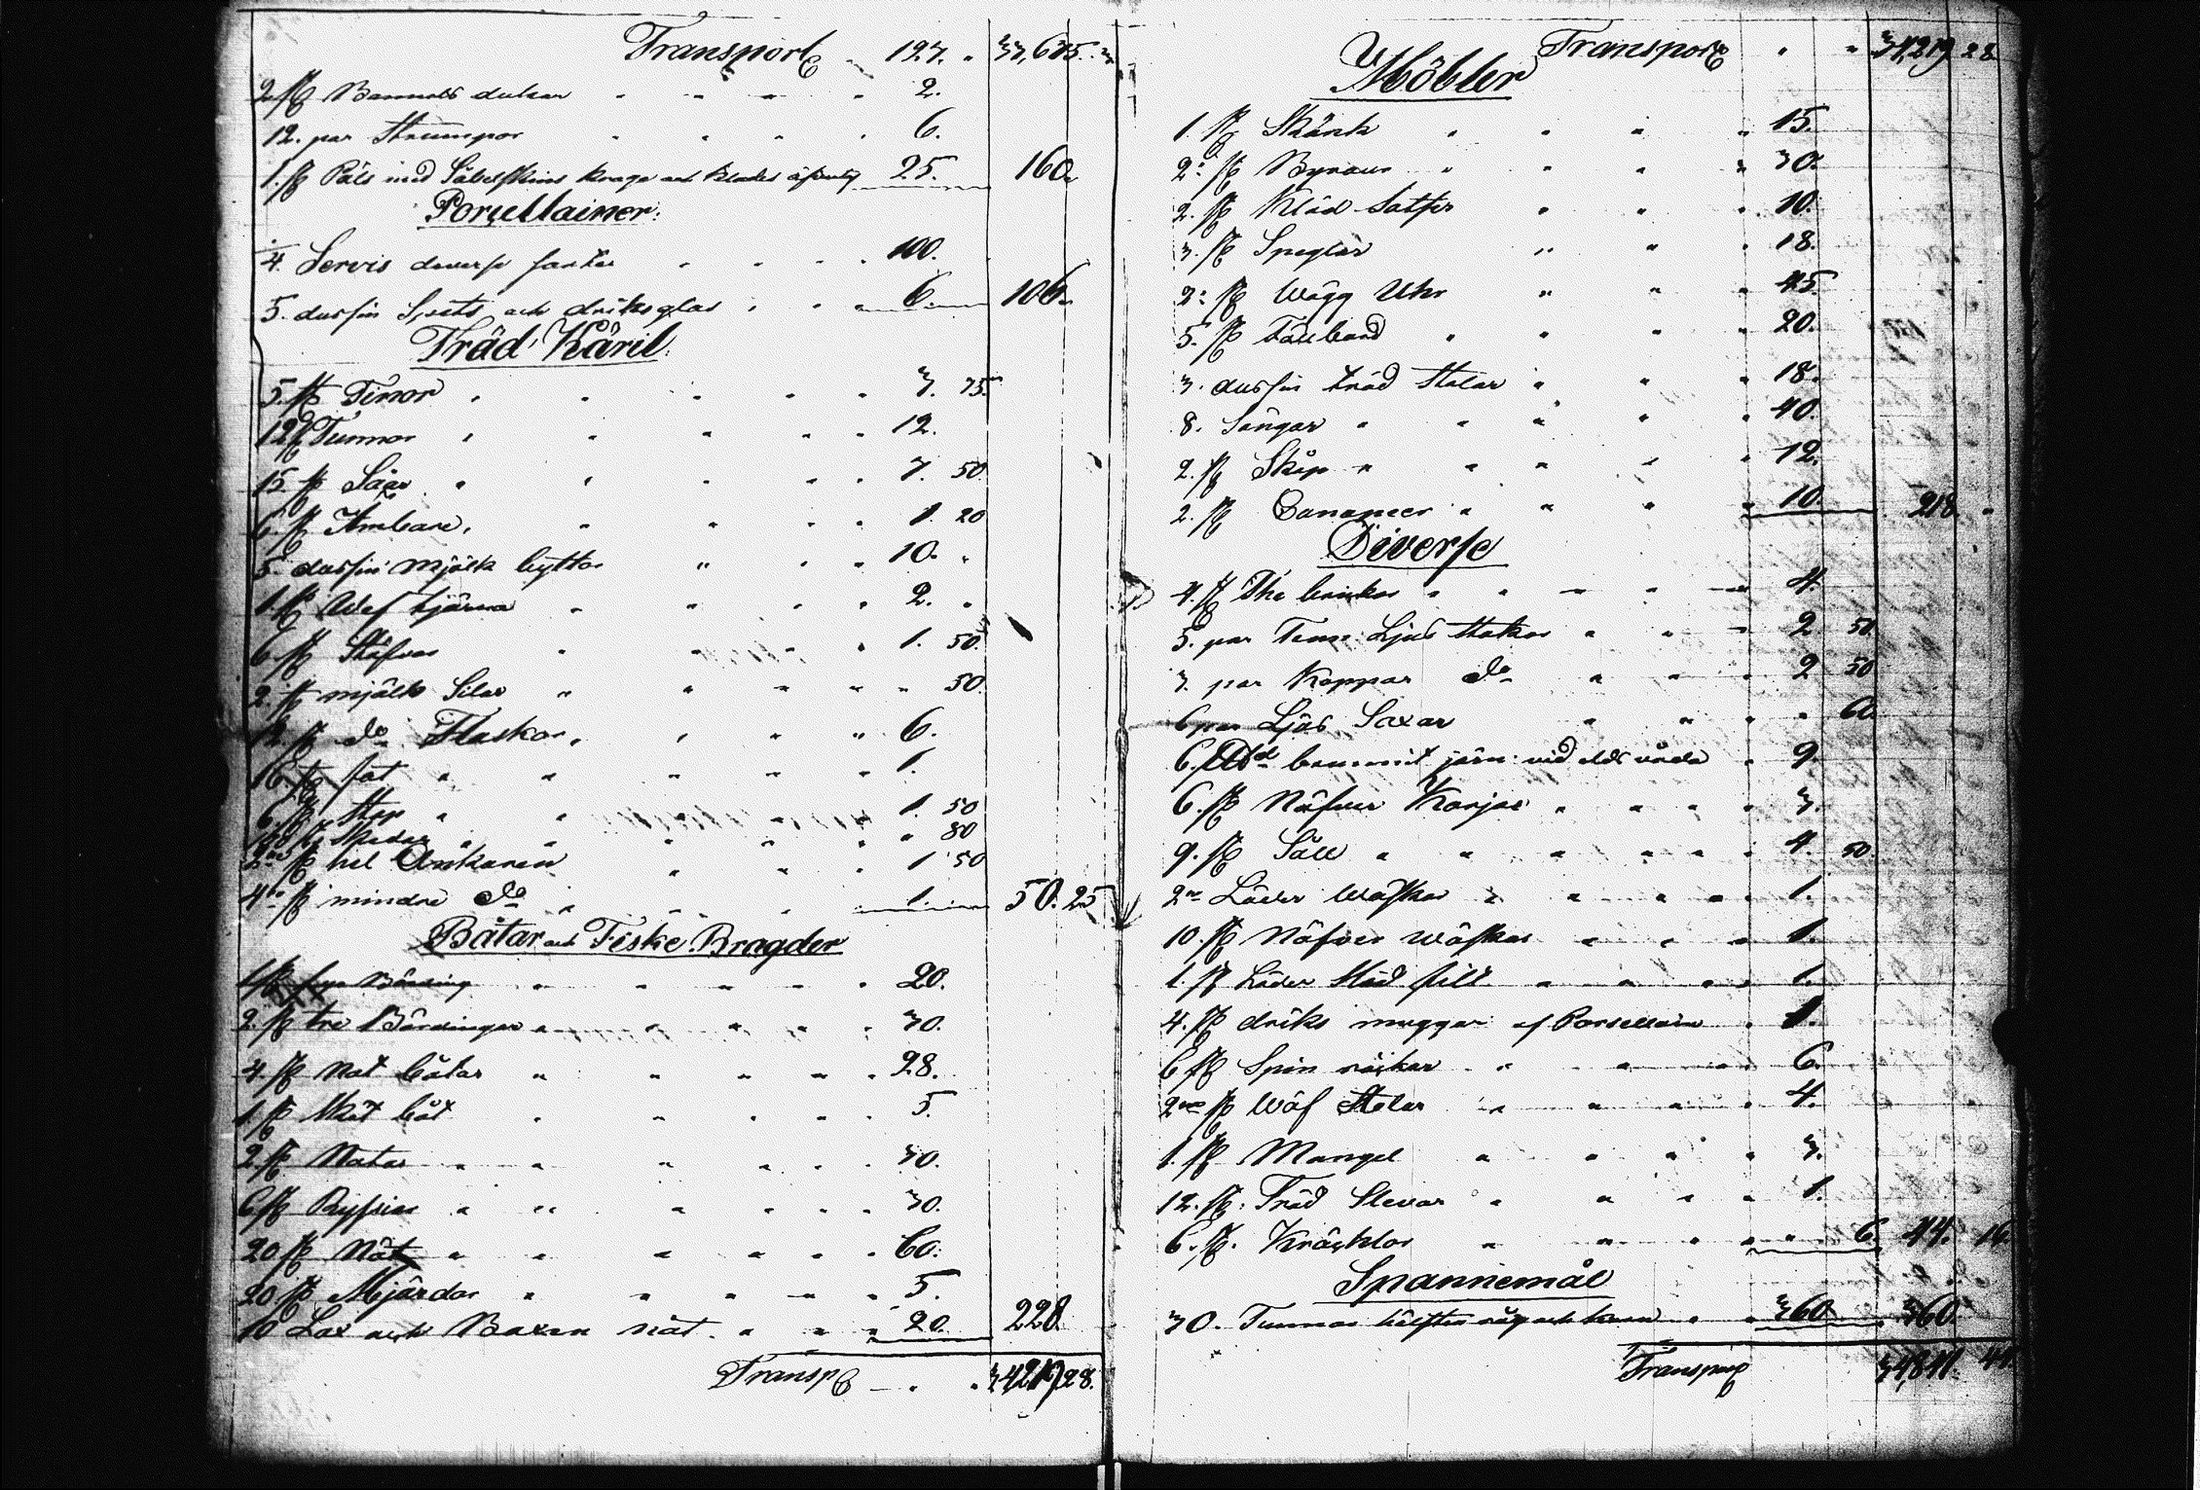 Transport 127. " 33,675. 3
2 st Bomulls dukar 2.
12. par Strumpor 6.
1. st Päls med Sabelskins krage och Blades 25. 160.
Porcellainer:
Servis diverse sorter 100.
5. dussin Spets och driksglas 6. 106.
Träd Käril.
5. st Tinor 3. 75.
12 st Tunnor 12.
15. st Såar 7. 50
6. st Ämbare, 1. 20
5. dussin Mjölk byttor 10.
1. st Waf tjärna 2.
6. st Stäfvor 1. 50
2. st mjölk Silar 50.
12 st do Flaskor 6.
16 st fat 1.
6. st Stop 1. 50
st Skedar 80
2ne st hel Ankaren 1 50
4ra st mindre do 1. 50. 25
Båtar och Fiske Bragder
1 st fyra Börding 20.
2. st tre Bördingar 30.
4. st Not båtar 28.
1 st Sköt båt 5.
2 st Notar 30.
6 st Ryssior 30.
20 st Nät 60.
20 st Mjärdar 5.
10 Lax och Boxen nät 20. 228.
Transpt 34219 28.
Transport 34,219 28
Möbler
1. st Skänk 15.
2: st Byråur 30.
2. st Kläd Satser 10.
3. st Speglar 18.
2: st Wägg Uhr 45.
5. st Fällbord 20.
3. dussin träd Stolar 18.
8. Sängar 40.
2. st Skåp 12.
2. st Cananeer 10. 218.
Diverse
4. st The brickor 4.
5. par Tenn Ljus stakar 2 50
3. par Koppar do 2 50
6 par Ljus Saxar 60
6. järn vid elds våda 9.
6. st Näfver Korjor 3.
9. st Såll 4. 50
2ne Läder Wäskor 1.
10. st Näfver Wäskor 1.
1. st Läder Städ fill 1.
4. st driks muggar af Porcellain 1.
6 st Spin råckar 6.
2ne st Wäf Stolar 4.
1. st Mangel 3.
12. st. Träd Slevar 1.
6. st. Kräcklor 6. 44. 16
Spannemål
30. Tunnor hälften råg och korn 360. 360.
Transport 34,841 44